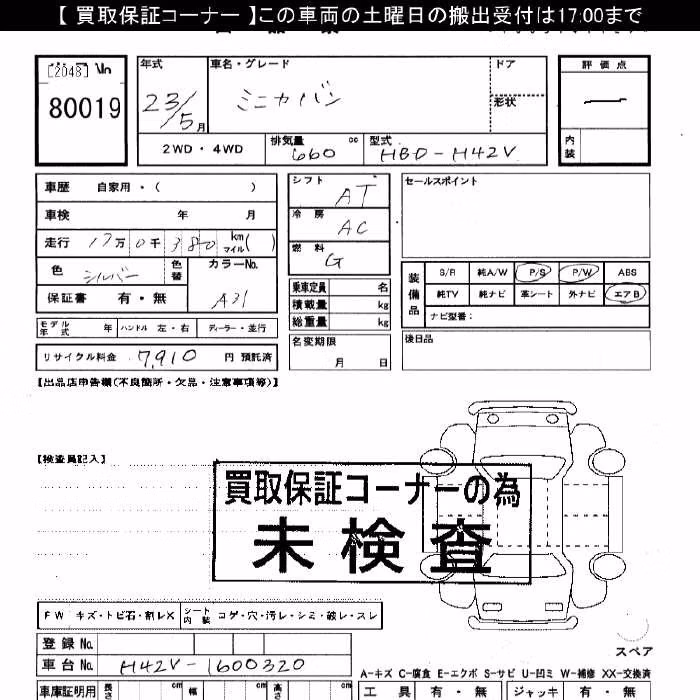 【 買取保証コーナー 】この車両の土曜日の搬出受付は17:00まで
[2048] No
80019
年式
23/5月
車名・グレード
ミニカバン
ドア
形状
評価点
―
内装
2WD・4WD
排気量 660 cc
型式 HBD-H42V
車歴 自家用・( )
車検 年 月
走行 17万0千380 km マイル( )
色 シルバー 色替
カラーNo. A31
保証書 有・無
モデル年式 年 ハンドル 左・右 ディーラー・並行
リサイクル料金 7,910 円 預託済
シフト AT
冷房 AC
燃料 G
乗車定員 名
積載量 kg
総重量 kg
名変期限
月 日
セールスポイント
装備品
S/R 純A/W P/S P/W ABS
純TV 純ナビ 革シート 外ナビ エアB
ナビ型番:
後日品
【出品店申告欄(不良箇所・欠品・注意事項等)】
【検査員記入】
買取保証コーナーの為
未検査
FW キズ・トビ石・割レX シート内装 コゲ・穴・汚レ・シミ・破レ・スレ
登録No.
車台No. H42V-1600320
スペア
A-キズ C-腐食 E-エクボ S-サビ U-凹ミ W-補修 XX-交換済
車庫証明用 長さ cm 幅 cm 高さ cm
工具 有・無 ジャッキ 有・無